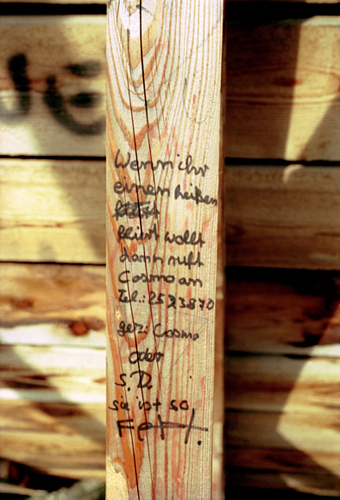 Wenn ihr
einen heißen
flirt wollt
dann ruft
Cosmo an
Tel.: 2523870
gez: Cosmo
oder
S.D.
sie ist so
Fett.